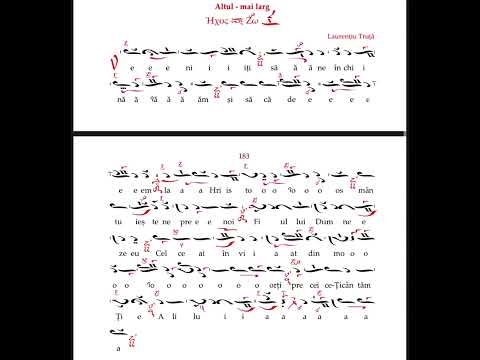 Altul - mai larg
Ἦχος Ζω
Laurențiu Truță
V e e e ni i i iți să ă ă ne în chi i
nă ă ă ă ă ăm și să că de e e e e
183
e e em la a a Hris is to o o o o o os mân
tu ieș te ne pre e e noi Fi ul lui Dum ne e
ze eu Cel ce at în vi i a at din mo o o
o o o o o o o o o orți pre cei ce-Ți cân tăm
Ți e A li lu i i a a a a a a a
a